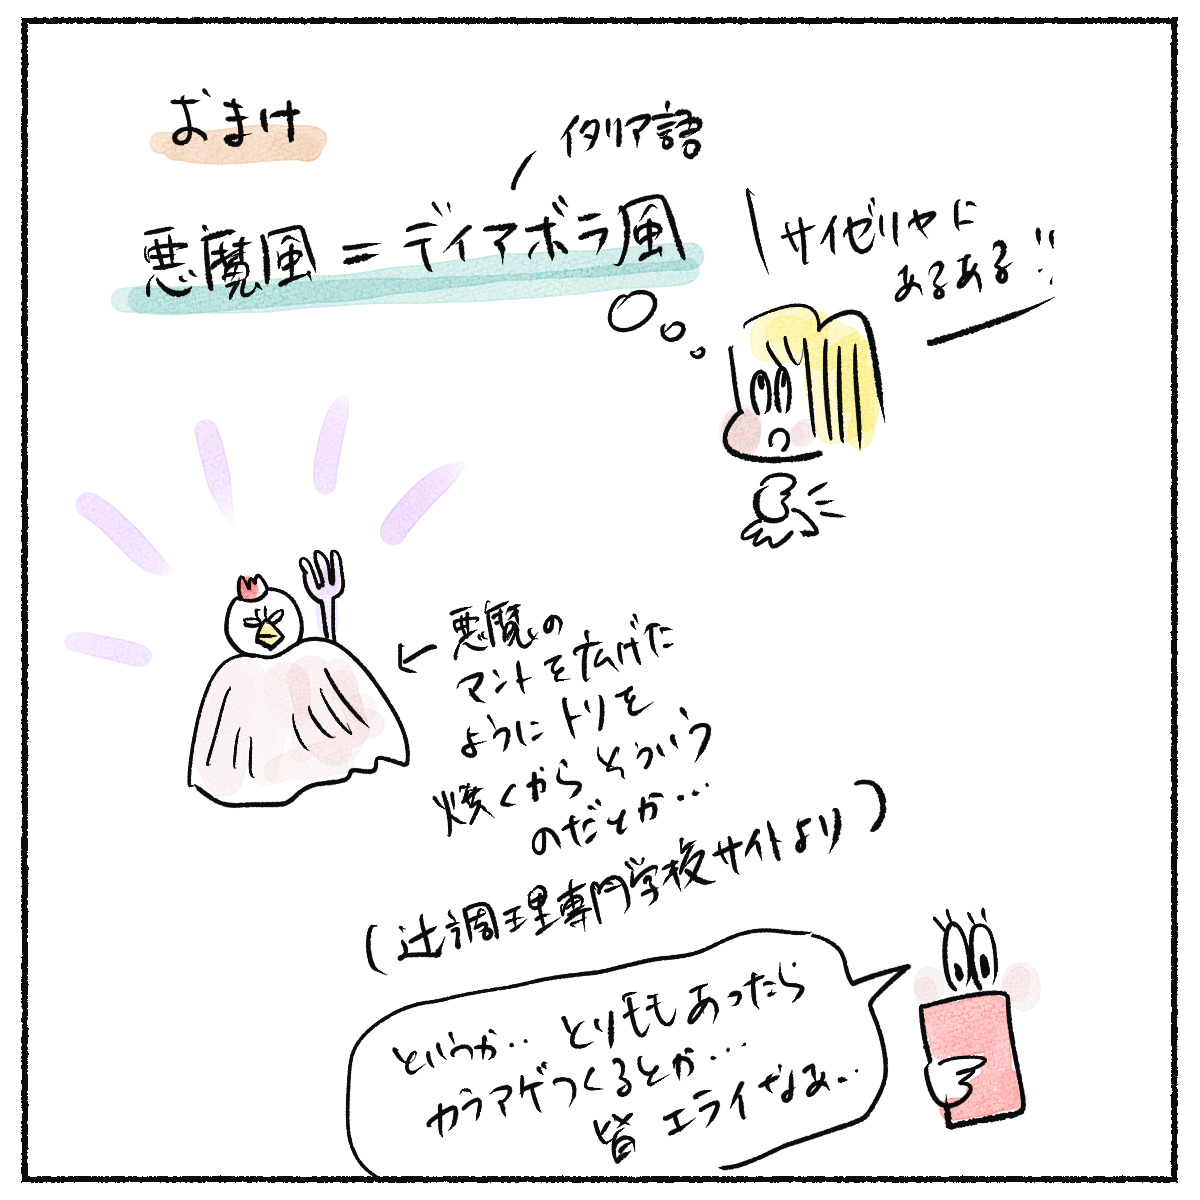 おまけ
イタリア語
悪魔風＝ディアボラ風
サイゼリヤに
あるある!!
悪魔の
マントを広げた
ようにトリを
焼くからそういう
のだとか…
(辻調理専門学校サイトより)
というか‥とりももあったら
カラアゲつくるとか…
皆エライなあ‥